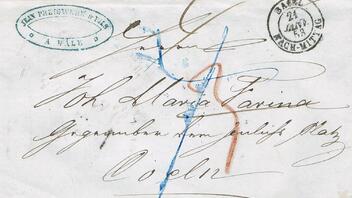 JEAN PREISWERK & FILS
A BÂLE
BASEL
21
JANV
58
NACH-MITTAG
Herren
Joh. Maria Farina
Gegenüber dem Jülichs Platz
Coeln
3